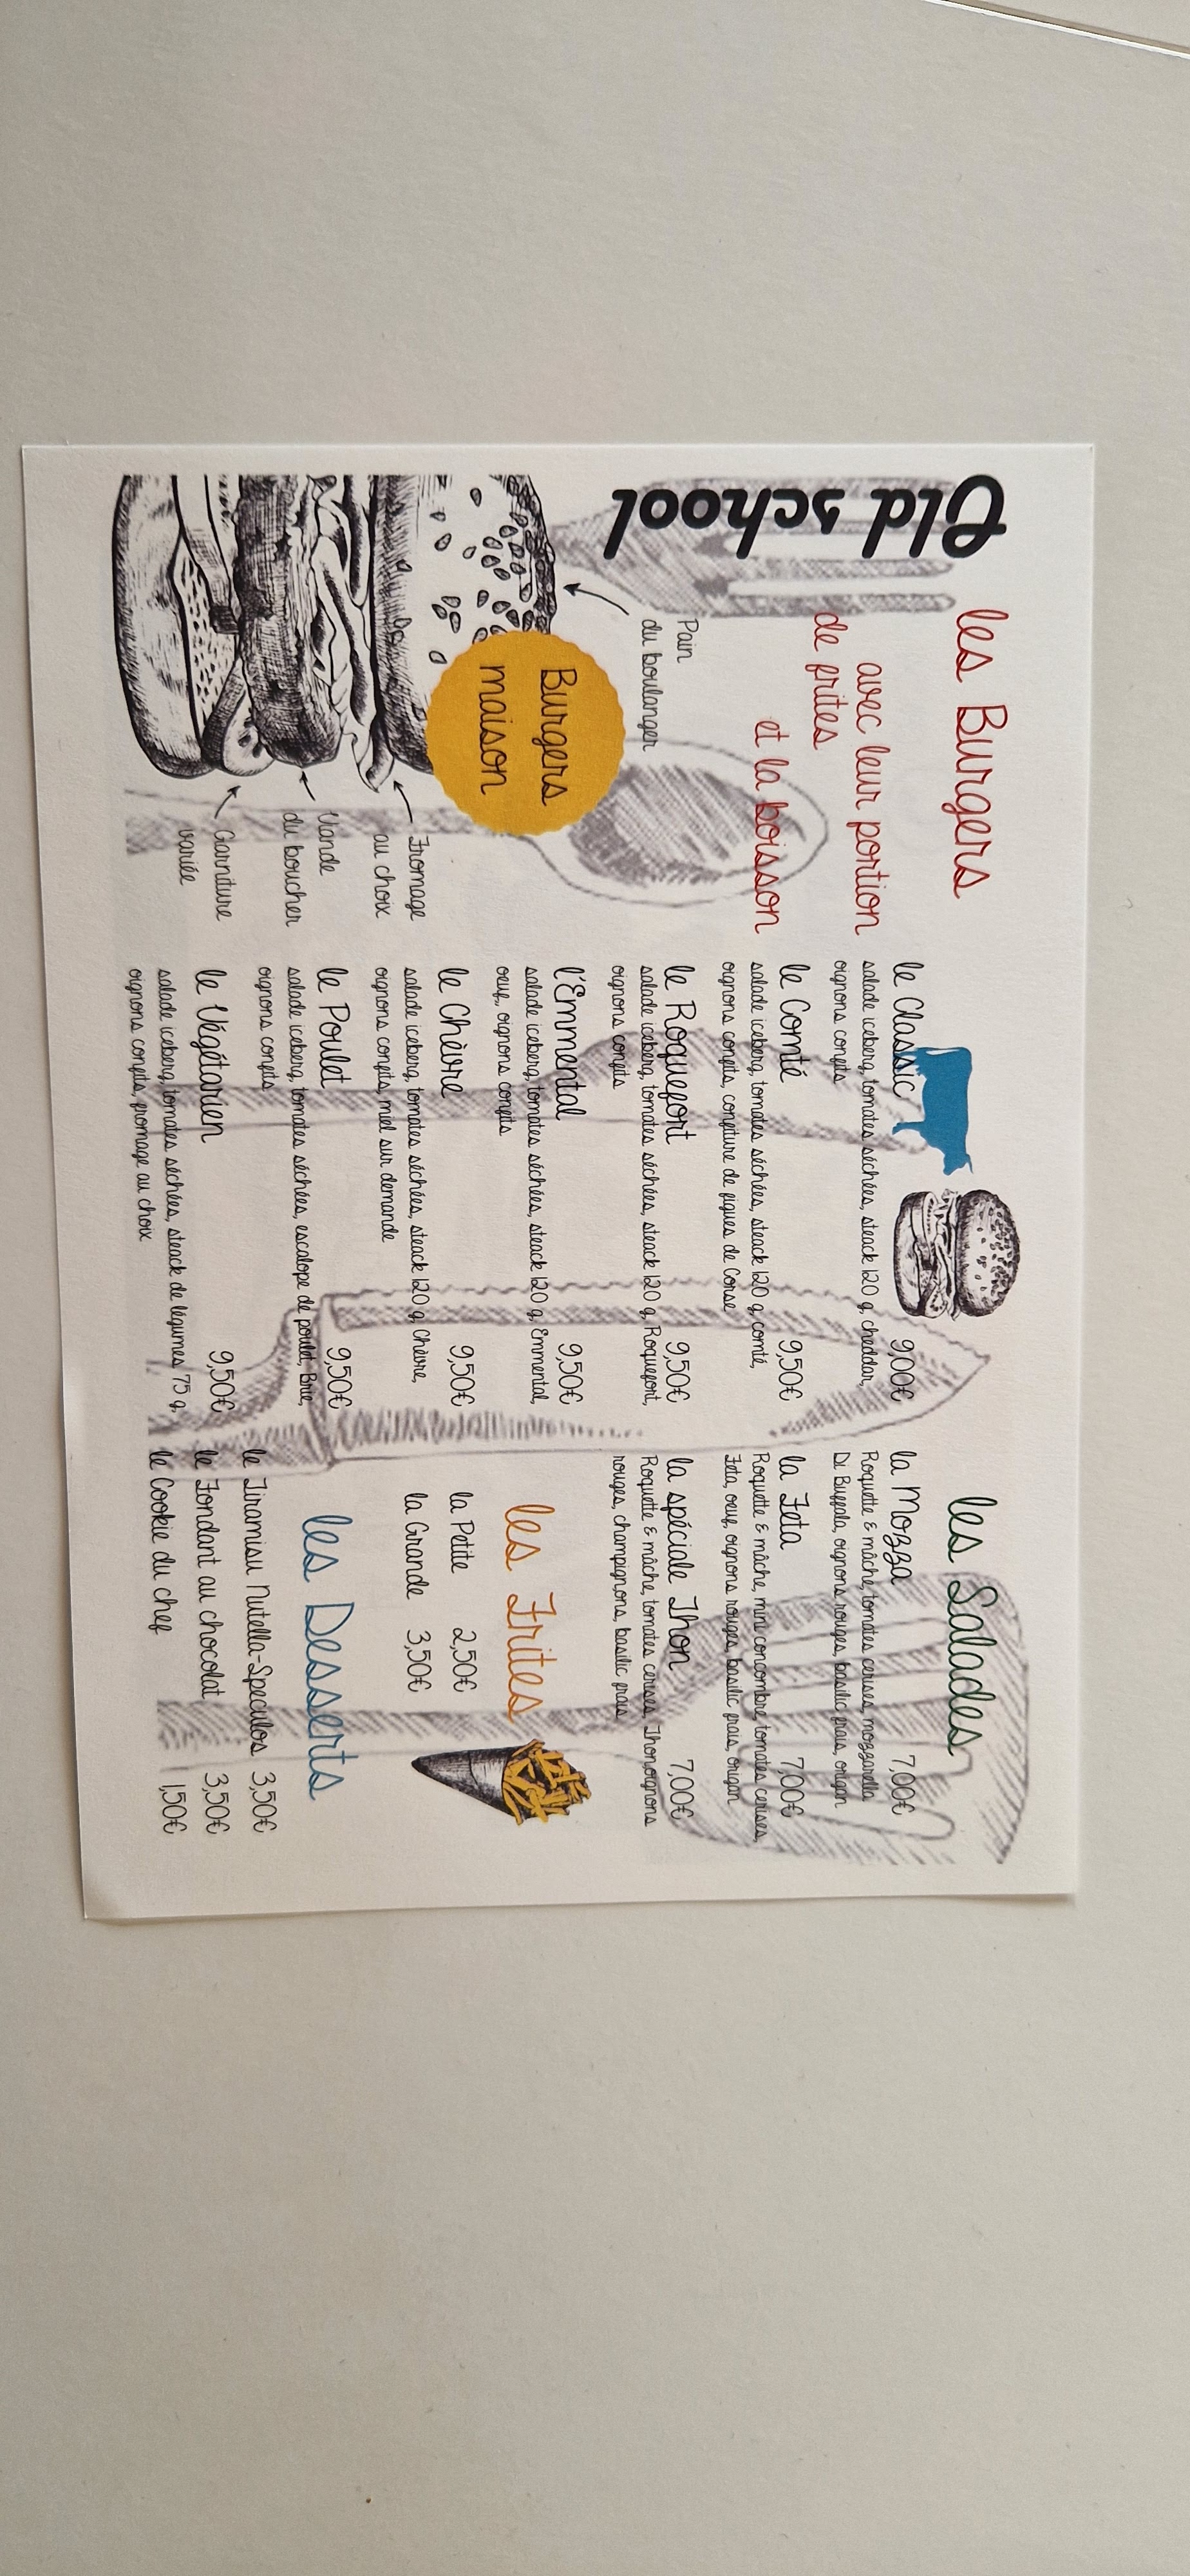 Old school
les Burgers
avec leur portion
de frites
et la boisson
Pain
du boulanger
Burgers
maison
Fromage
au choix
Viande
du boucher
Garniture
variée
le Classic 9,00€
salade iceberg, tomates séchées, steack 120 g, cheddar,
oignons confits
le Comté 9,50€
salade iceberg, tomates séchées, steack 120 g, comté,
oignons confits, confiture de figues de Corse
le Roquefort 9,50€
salade iceberg, tomates séchées, steack 120 g, Roquefort,
oignons confits
l'Emmental 9,50€
salade iceberg, tomates séchées, steack 120 g, Emmental,
oeuf, oignons confits
le Chèvre 9,50€
salade iceberg, tomates séchées, steack 120 g, Chèvre,
oignons confits, miel sur demande
le Poulet 9,50€
salade iceberg, tomates séchées, escalope de poulet, Brie,
oignons confits
le Végétarien 9,50€
salade iceberg, tomates séchées, steack de légumes 75 g,
oignons confits, fromage au choix
les Salades
la Mozza 7,00€
Roquette & mâche, tomates cerises, mozzarella
Di Buffala, oignons rouges, basilic frais, origan
la Feta 7,00€
Roquette & mâche, mini concombre, tomates cerises,
Feta, oeuf, oignons rouges, basilic frais, origan
la spéciale Thon 7,00€
Roquette & mâche, tomates cerises, Thon, oignons
rouges, champignons, basilic frais
les Frites
la Petite 2,50€
la Grande 3,50€
les Desserts
le Tiramisu Nutella-Speculos 3,50€
le Fondant au chocolat 3,50€
le Cookie du chef 1,50€